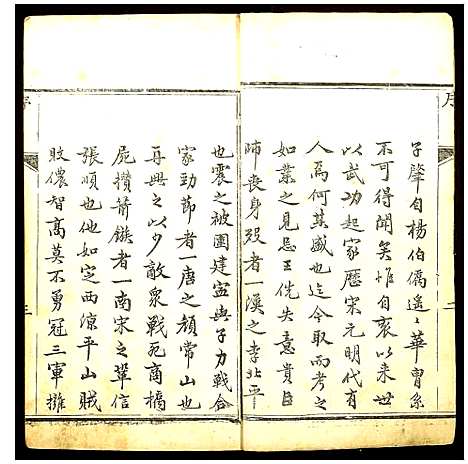 子肇自楊伯僑遙遙華冑系
不可得聞矣惟自袞以来世
以武功起家歷宋元明代有
人焉何其盛也迄今取而考之
如業之見忌王侁失意貴臣
師喪身殁者一漢之李北平
也震之被圍建寍與子力戰合
家勁節者一唐之顏常山也
再興之以少敵衆戰死商橋
屍攢箭鏃者一南宋之鞏信
張順也他如定西涼平山賊
敗儂智高莫不勇冠三軍摧
序
二
序
三